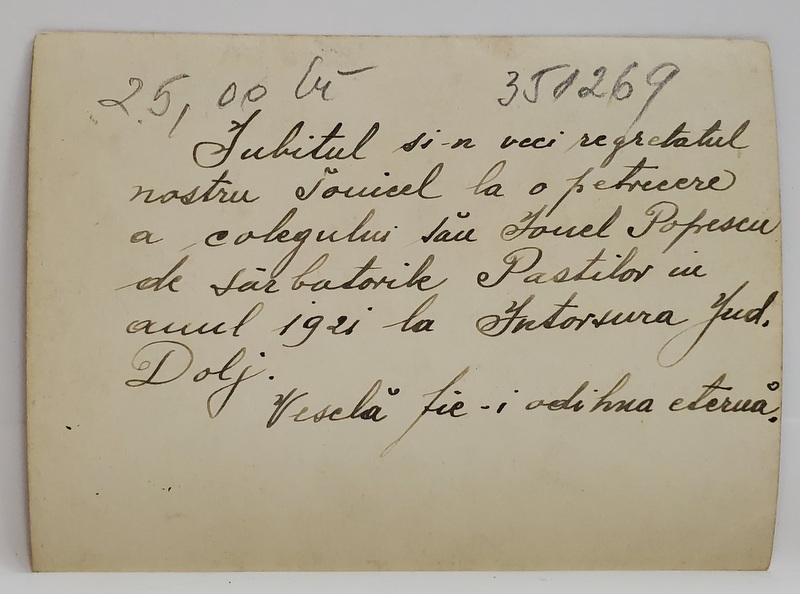 25,00 lei 351269
Iubitul si-n veci regretatul
nostru Ionicel la o petrecere
a colegului său Ionel Popescu
de sărbatorile Pastilor in
anul 1921 la Intorsura Jud.
Dolj.
Veselă fie-i odihna eternă.